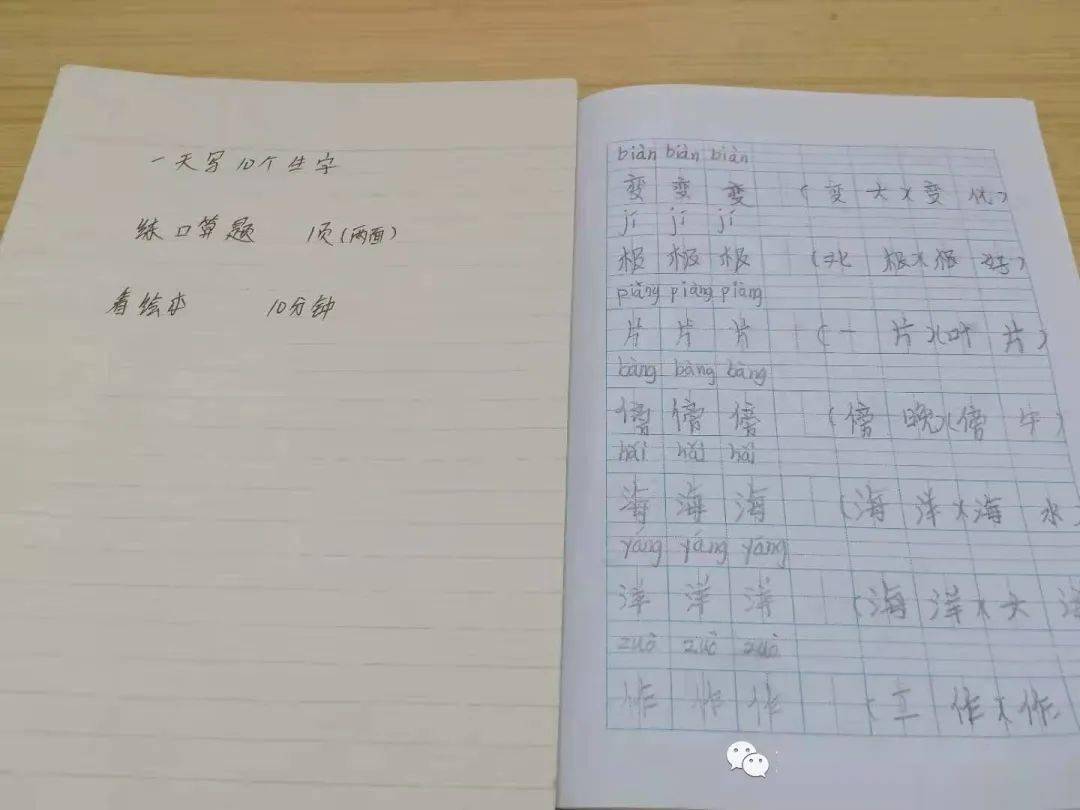 一天写10个生字
练口算题 1页(两面)
看绘本 10分钟
biàn biàn biàn
变 变 变 (变 大)(变 化)
jí jí jí
极 极 极 (北 极)(极 好)
piàng piàng piàng
片 片 片 (一 片)(叶 片)
bàng bàng bàng
傍 傍 傍 (傍 晚)(傍 午)
hǎi hǎi hǎi
海 海 海 (海 洋)(海 水
yáng yáng yáng
洋 洋 洋 (海 洋)(大 洋
zuò zuò zuò
作 作 作 (工 作)(作